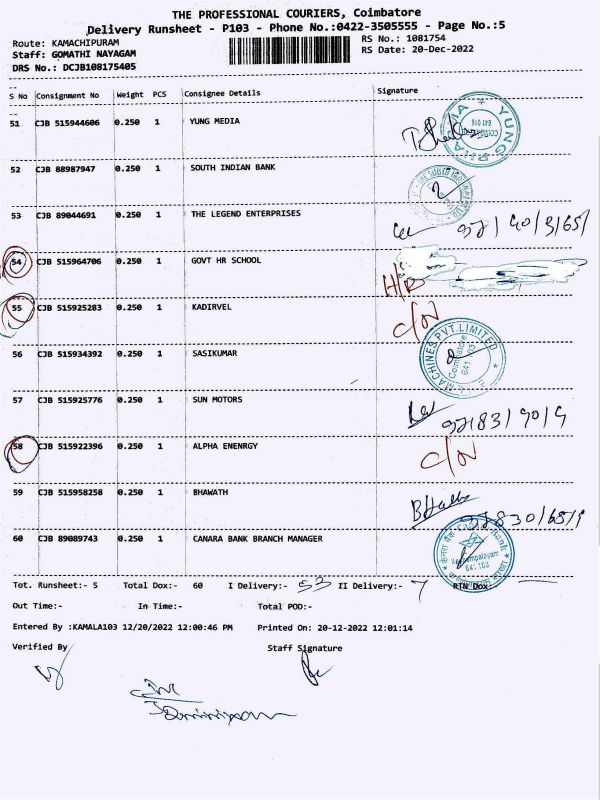 THE PROFESSIONAL COURIERS, Coimbatore
Delivery Runsheet - P103 - Phone No.:0422-3505555 - Page No.:5
Route: KAMACHIPURAM RS No.: 1081754
Staff: GOMATHI NAYAGAM RS Date: 20-Dec-2022
DRS No.: DCJB108175405
S No Consignment No Weight PCS Consignee Details Signature
51 CJB 515944606 0.250 1 YUNG MEDIA
52 CJB 88987947 0.250 1 SOUTH INDIAN BANK
53 CJB 89044691 0.250 1 THE LEGEND ENTERPRISES
54 CJB 515964706 0.250 1 GOVT HR SCHOOL
H/R
55 CJB 515925283 0.250 1 KADIRVEL C/N
MACHINES PVT.LIMITED
Coimbatore
641 103
56 CJB 515934392 0.250 1 SASIKUMAR
57 CJB 515925776 0.250 1 SUN MOTORS
58 CJB 515922396 0.250 1 ALPHA ENENRGY C/N
59 CJB 515958258 0.250 1 BHAWATH
60 CJB 89089743 0.250 1 CANARA BANK BRANCH MANAGER
641 103
Tot. Runsheet:- 5 Total Dox:- 60 I Delivery:- 53 II Delivery:- 7 RTN Dox:-
Out Time:- In Time:- Total POD:-
Entered By :KAMALA103 12/20/2022 12:00:46 PM Printed On: 20-12-2022 12:01:14
Verified By Staff Signature